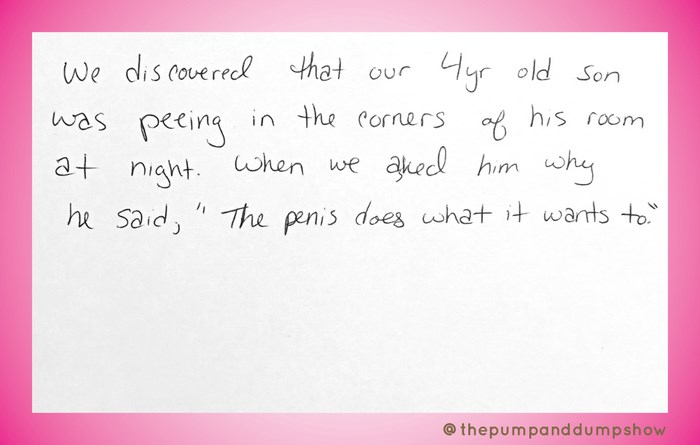 We discovered that our 4yr old son
was peeing in the corners of his room
at night. When we asked him why
he said, "The penis does what it wants to."
@thepumpanddumpshow